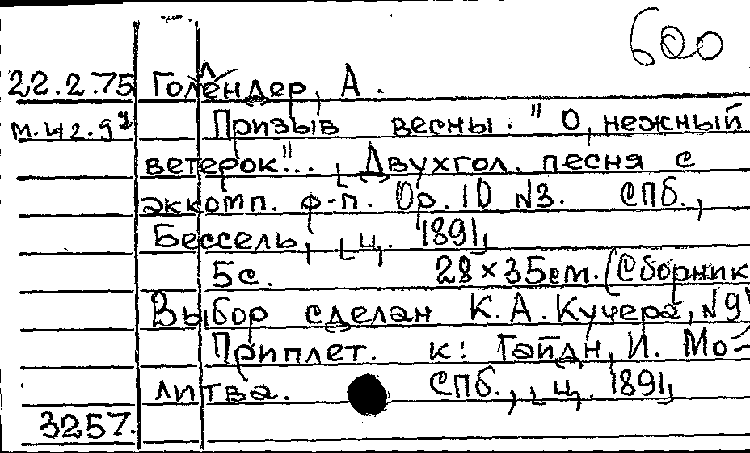 600
22.2.75 Голендер, А.
м.иг.93 Призыв весны. "О, нежный
ветерок"... Двухгол. песня с
эккомп. ф-п. Ор. 10 N3. СПб.,
Бессель, [ц. 1891]
5с. 28×35см. (Сборник
Выбор сделан К.А. Кучера, N9)
Приплет. к: Гайдн, И. Мо-
литва. СПб., [ц. 1891]
3257.